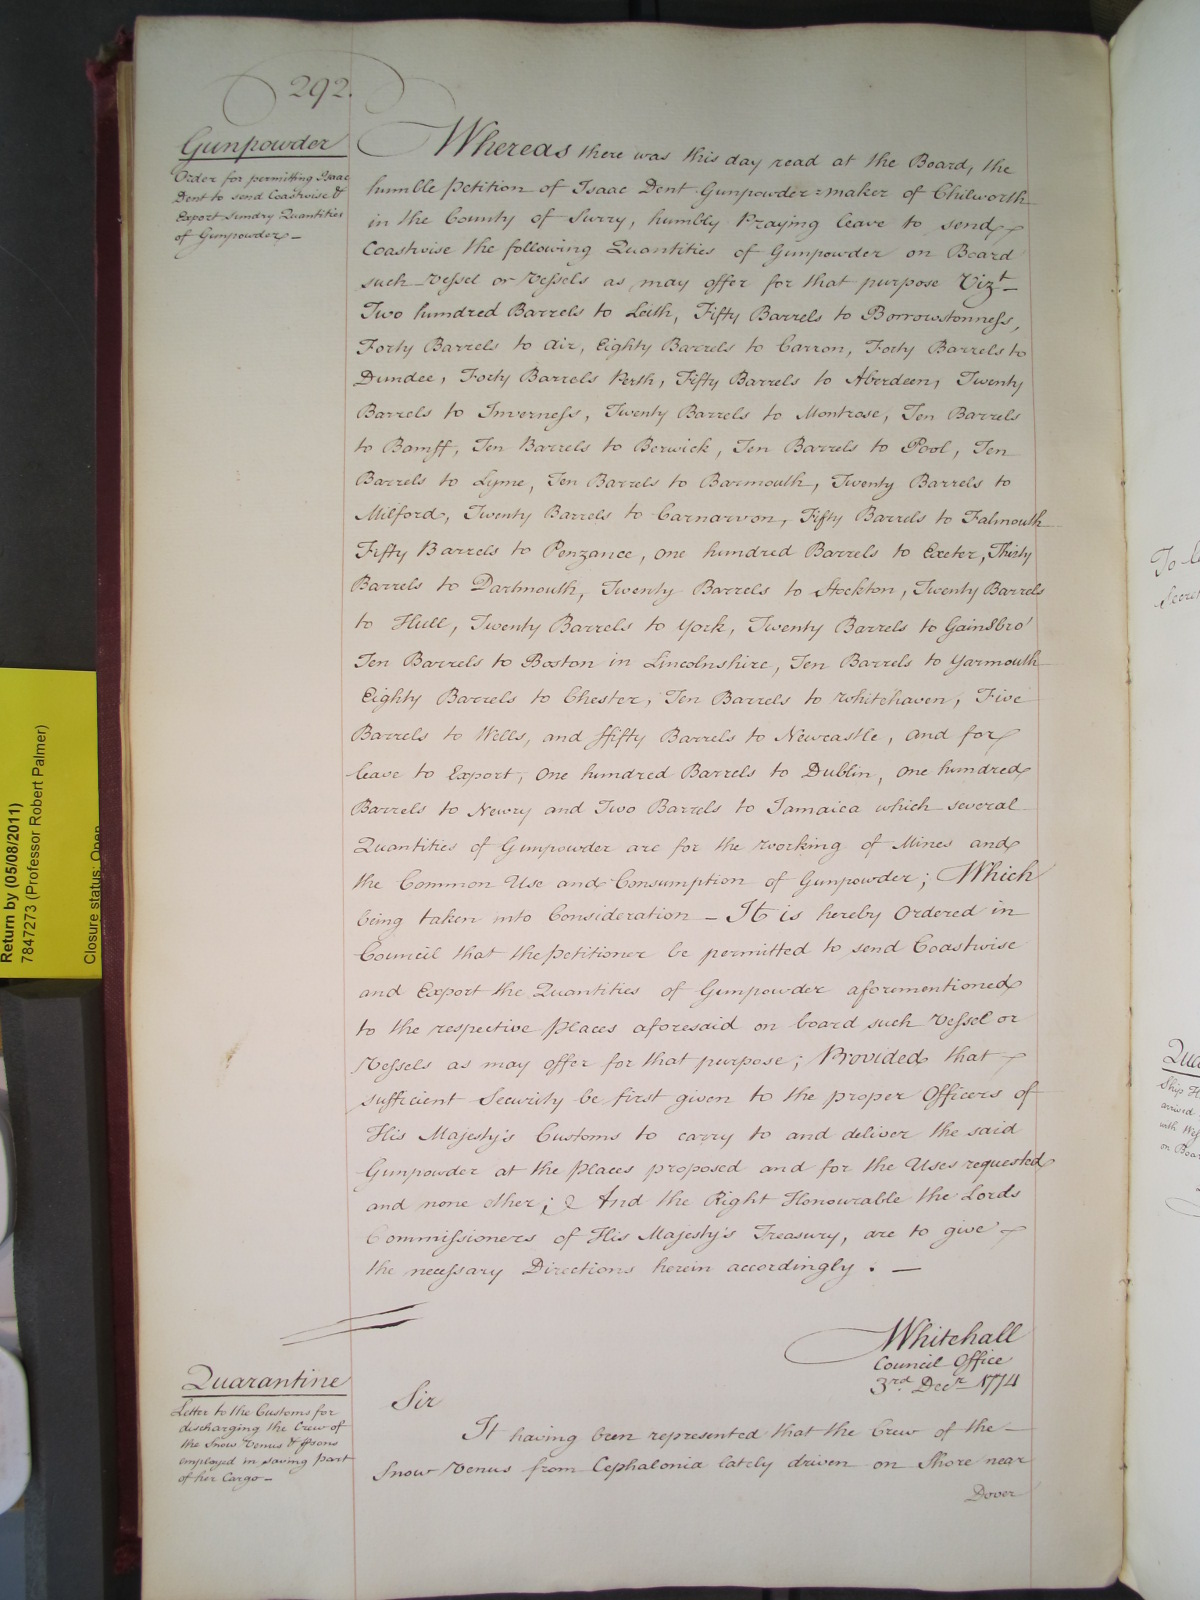 292.
Gunpowder
Order for permitting Isaac
Dent to send Coastwise &
Export Sundry Quantities
of Gunpowder —
Whereas there was this day read at the Board, the
humble Petition of Isaac Dent Gunpowder=maker of Chilworth
in the County of Surry, humbly Praying leave to send
Coastwise the following Quantities of Gunpowder on Board
such Vessel or Vessels as may offer for that purpose Vizt —
Two hundred Barrels to Leith, Fifty Barrels to Borrowstonness,
Forty Barrels to Air, Eighty Barrels to Carron, Forty Barrels to
Dundee, Forty Barrels Perth, Fifty Barrels to Aberdeen, Twenty
Barrels to Inverness, Twenty Barrels to Montrose, Ten Barrels
to Bamff, Ten Barrels to Berwick, Ten Barrels to Pool, Ten
Barrels to Lyme, Ten Barrels to Barmouth, Twenty Barrels to
Milford, Twenty Barrels to Carnarvon, Fifty Barrels to Falmouth
Fifty Barrels to Penzance, one hundred Barrels to Exeter, Thirty
Barrels to Dartmouth, Twenty Barrels to Stockton, Twenty Barrels
to Hull, Twenty Barrels to York, Twenty Barrels to Gainsbro'
Ten Barrels to Boston in Lincolnshire, Ten Barrels to Yarmouth
Eighty Barrels to Chester, Ten Barrels to Whitehaven, Five
Barrels to Wells, and ffifty Barrels to Newcastle, and for
leave to Export, one hundred Barrels to Dublin, one hundred
Barrels to Newry and Two Barrels to Jamaica which several
Quantities of Gunpowder are for the working of Mines and
the Common Use and Consumption of Gunpowder; Which
being taken into Consideration — It is hereby Ordered in
Council that the Petitioner be permitted to send Coastwise
and Export the Quantities of Gunpowder aforementioned
to the respective Places aforesaid on board such Vessel or
Vessels as may offer for that purpose; Provided that
sufficient Security be first given to the proper Officers of
His Majesty's Customs to carry to and deliver the said
Gunpowder at the Places proposed and for the Uses requested
and none other; And the Right Honourable the Lords
Commissioners of His Majesty's Treasury, are to give
the necessary Directions herein accordingly. —
Whitehall
Council Office
3rd. Decr 1774
Quarantine
Letter to the Customs for
discharging the Crew of
the Snow Venus & Psons
employed in saving part
of her Cargo —
Sir
It having been represented that the Crew of the —
Snow Venus from Cephalonia lately driven on Shore near
Dover
Return by (05/08/2011)
7847273 (Professor Robert Palmer)
Closure status: Open
To
Ship
arrived
with
on Boar